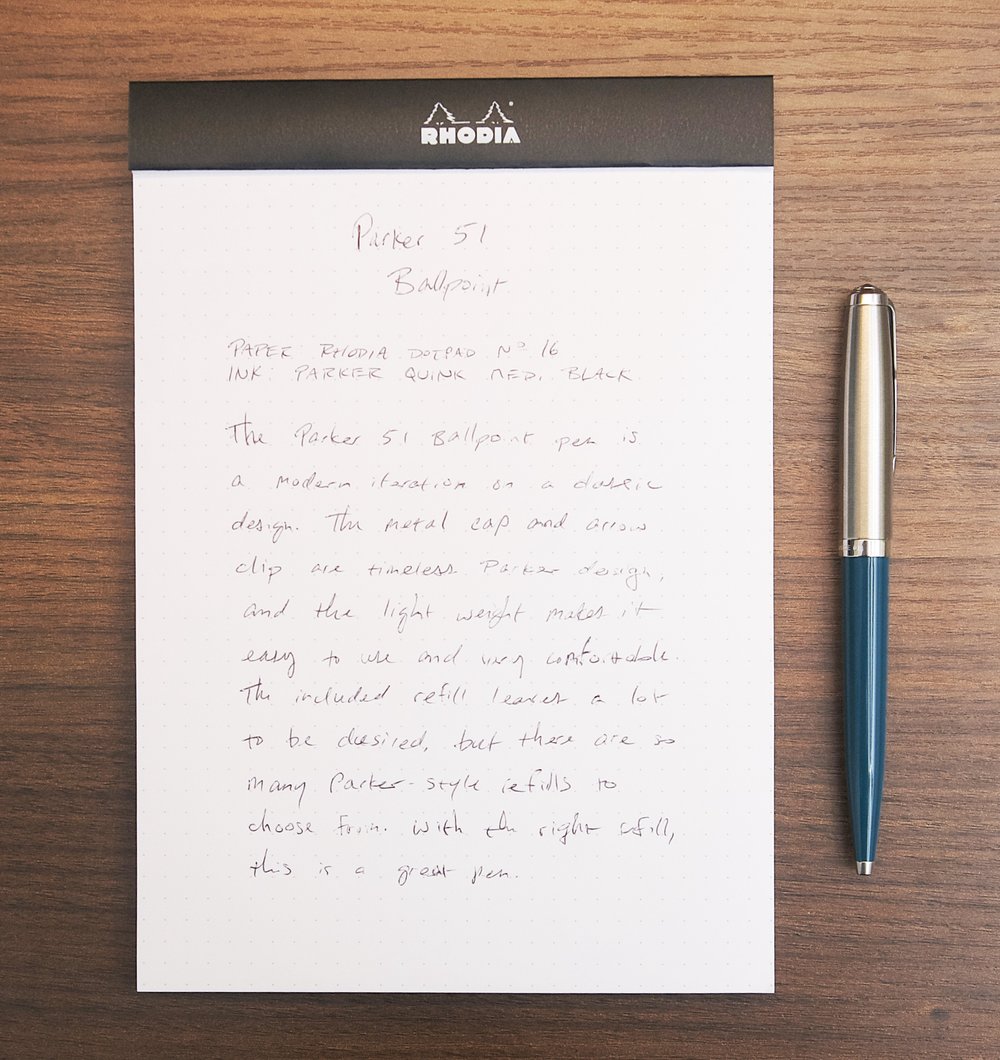 RHODIA
Parker 51
Ballpoint
PAPER: RHODIA DOTPAD Nº 16
INK: PARKER QUINK MED. BLACK
The Parker 51 Ballpoint pen is
a modern iteration on a classic
design. The metal cap and arrow
clip are timeless Parker design,
and the light weight makes it
easy to use and very comfortable.
The included refill leaves a lot
to be desired, but there are so
many Parker-style refills to
choose from. With the right refill,
this is a great pen.